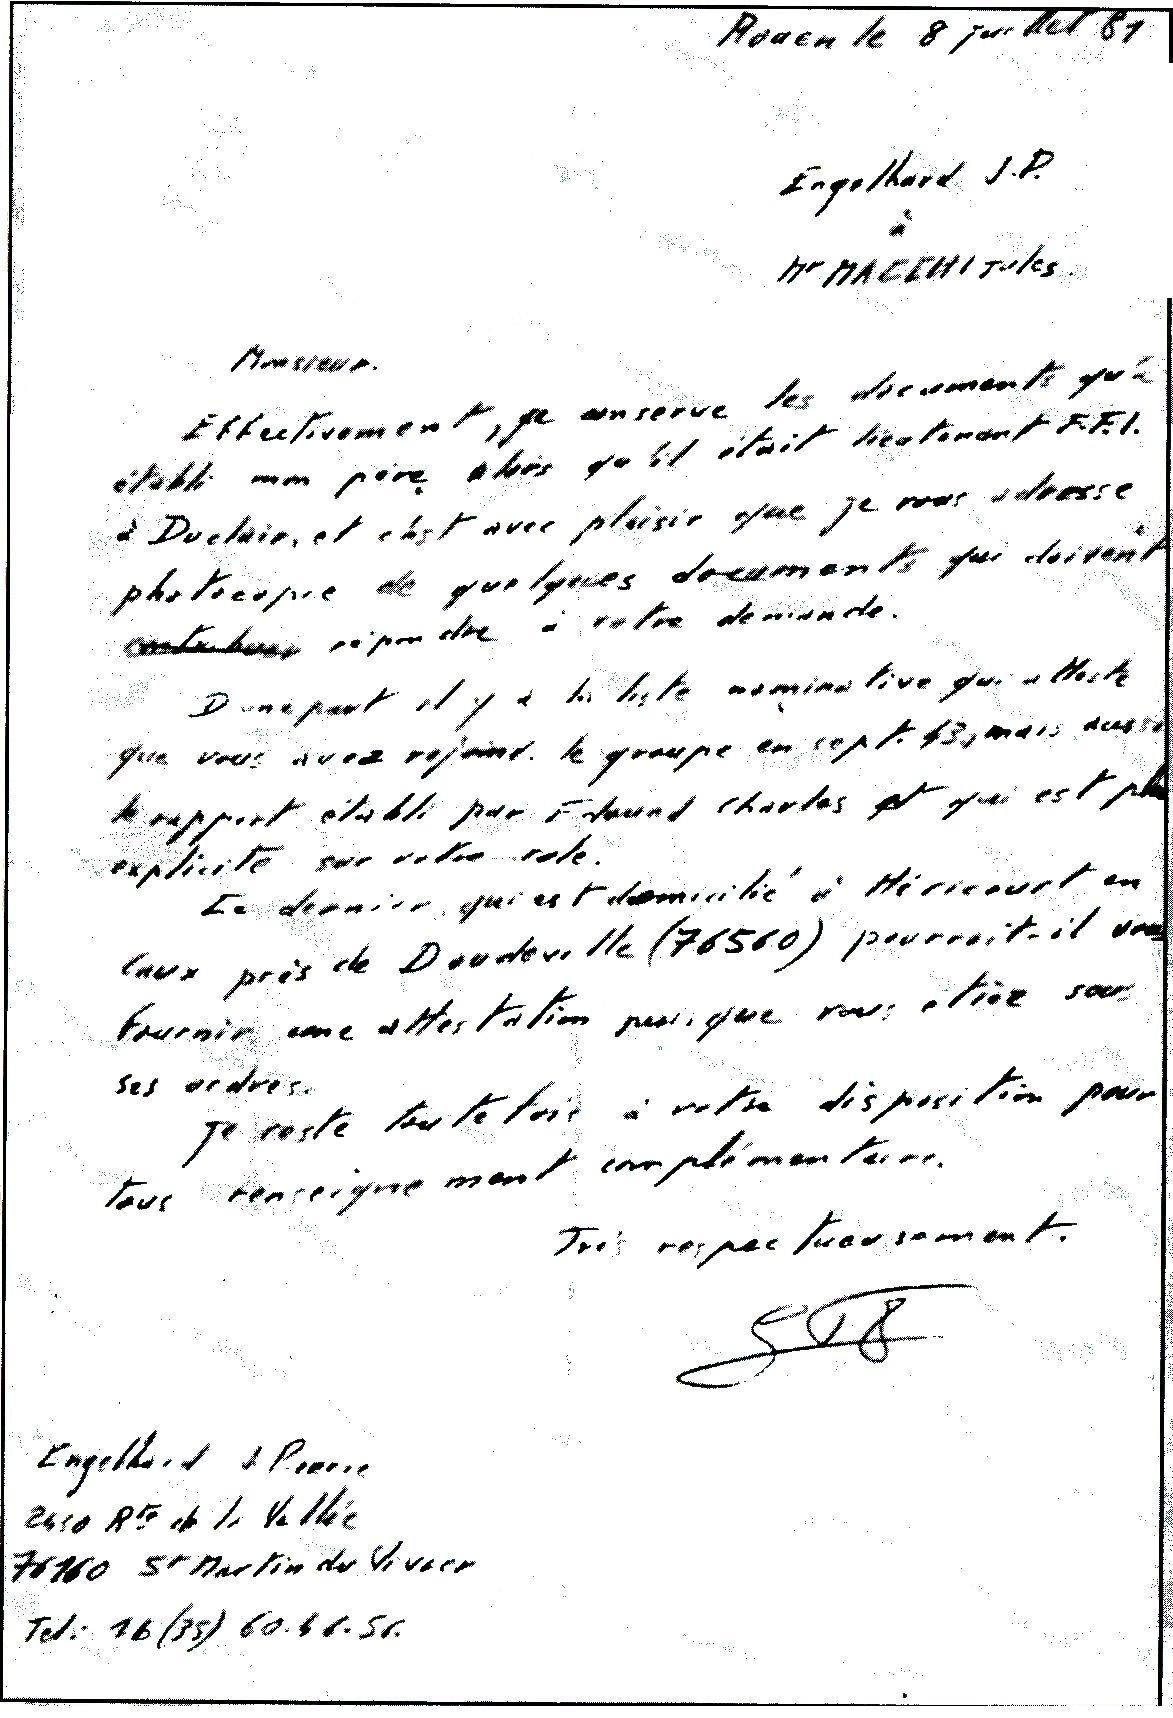 Rouen le 8 juillet 81
Engelhard J.P.
à
Mr MACCHI Jules.
Monsieur.
Effectivement, je conserve les documents qu'a
établi mon père, alors qu'il était lieutenant F.F.I.
à Duclair, et c'est avec plaisir que je vous adresse
photocopie de quelques documents qui doivent
répondre à votre demande.
D'une part il y a la liste nominative qui atteste
que vous avez rejoind. le groupe en sept. 43, mais aussi
le rapport établi par Edouard Charles et qui est plus
explicite sur votre role.
Ce dernier, qui est domicilié à Héricourt en
Caux près de Doudeville (76560) pourrait-il vous
fournir une attestation puisque vous étiez sous
ses ordres.
Je reste toutefois à votre disposition pour
tous renseignement complémentaire.
Très respectueusement.
Engelhard J Pierre
2410 Rte de la Vallée
76160 St Martin du Vivier
Tel: 16 (35) 60.46.56.